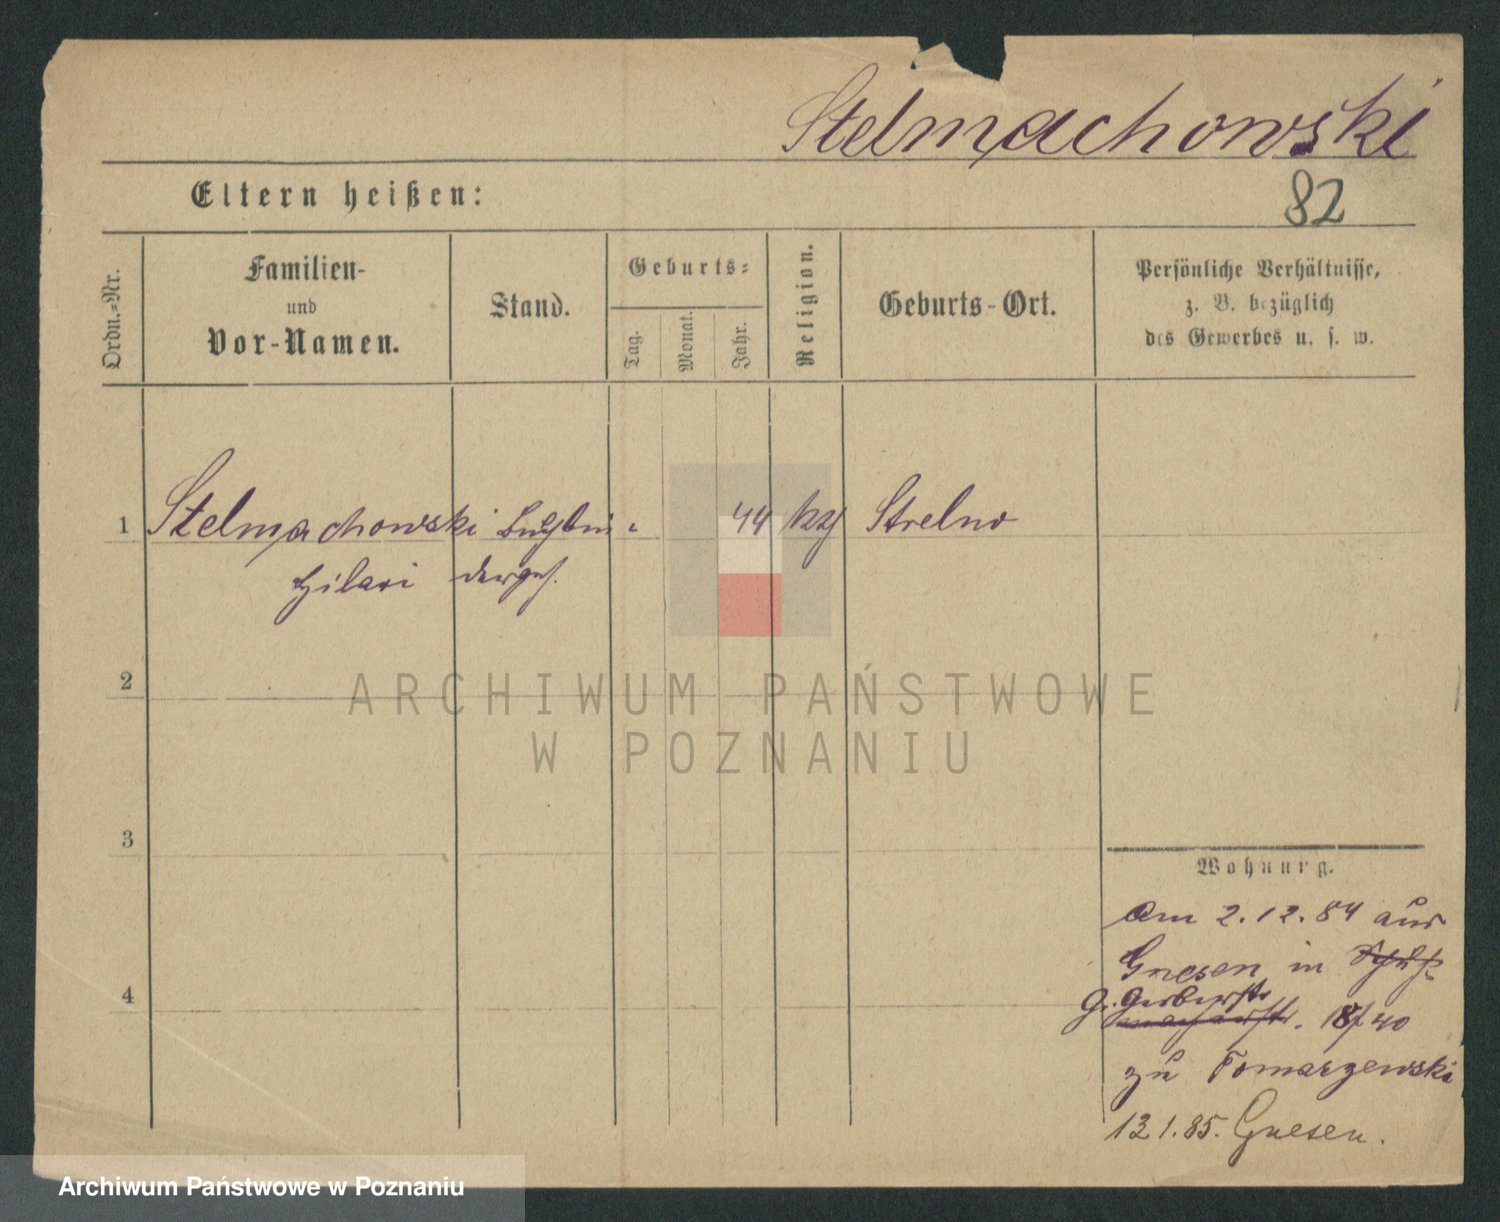 Stelmachowski
Eltern heißen:
82
Ordn.-Nr.
Familien-
und
Vor-Namen.
Stand.
Geburts-
Tag.
Monat.
Jahr.
Religion.
Geburts-Ort.
Persönliche Verhältnisse,
z. B. bezüglich
des Gewerbes u. s. w.
1 Stelmachowski 44 Strelno
Hilari
2
ARCHIWUM PAŃSTWOWE
W POZNANIU
3
Wohnung.
Am 2.12.84 aus
Gnesen in
4
G. Gerberstr
18/40
zu Tomarzewski
13 1. 85. Gnesen.
Archiwum Państwowe w Poznaniu